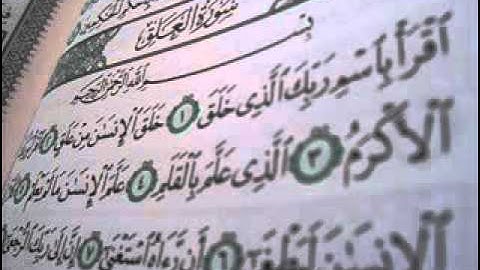 سُورَةُ الْعَلَقِ
بِسْمِ اللَّهِ الرَّحْمَٰنِ الرَّحِيمِ
ٱقْرَأْ بِٱسْمِ رَبِّكَ ٱلَّذِى خَلَقَ ١ خَلَقَ ٱلْإِنسَٰنَ مِنْ عَلَقٍ ٢ ٱقْرَأْ
ٱلْأَكْرَمُ ٣ ٱلَّذِى عَلَّمَ بِٱلْقَلَمِ ٤ عَلَّمَ ٱلْإِنسَٰنَ مَا لَمْ يَعْلَمْ ٥
ٱلْإِنسَٰنَ لَيَطْغَىٰٓ ٦ أَن رَّءَاهُ ٱسْتَغْنَىٰٓ ٧ إِنَّ إِلَىٰ رَبِّكَ ٱلرُّجْعَىٰٓ